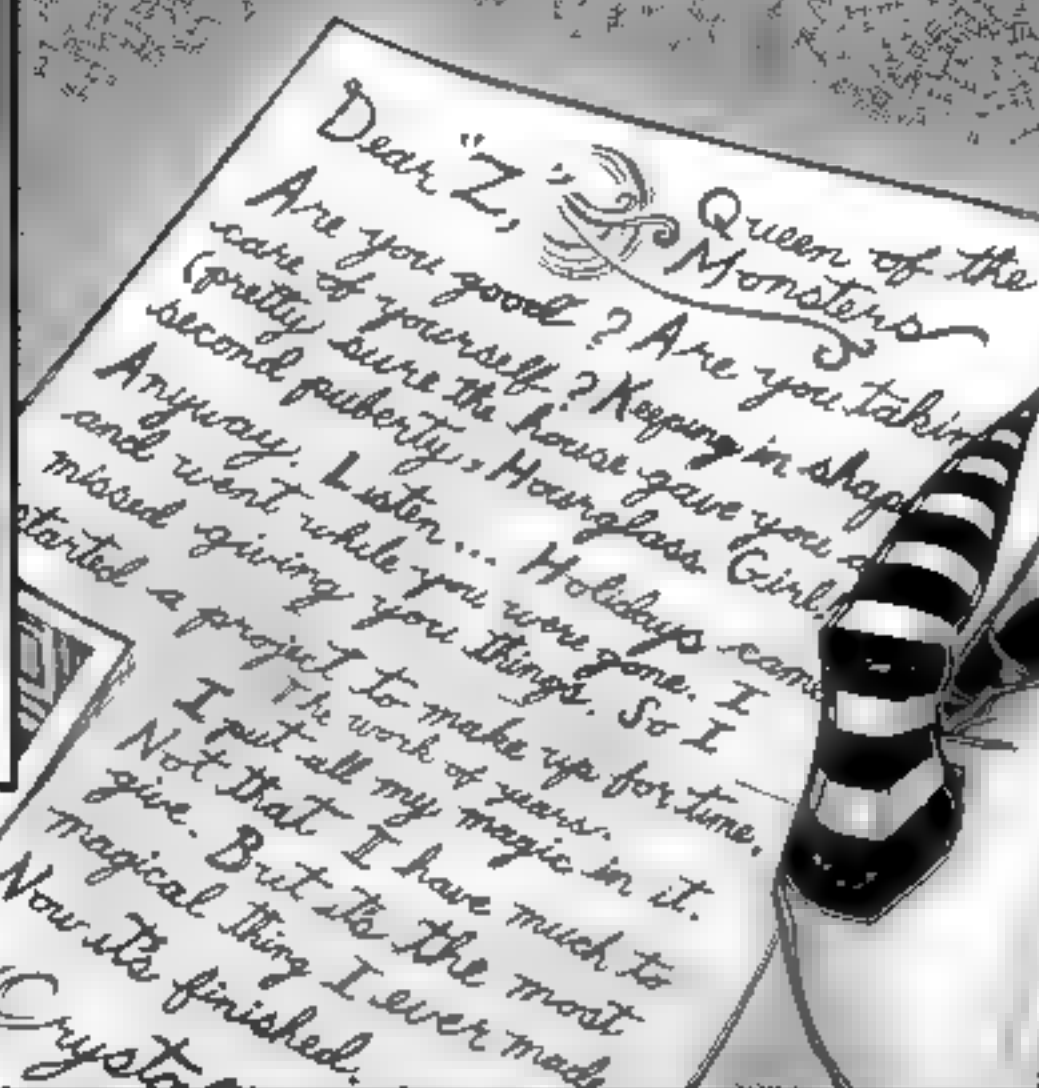 Dear "Z,"
Queen of the
Monsters
Are you good? Are you takin
care of yourself? Keeping in shap
(pretty sure the house gave you a
second puberty, Hourglass Girl!
Anyway. Listen... Holidays came
and went while you were gone. I
missed giving you things. So I
started a project to make up for time.
The work of years.
I put all my magic in it.
Not that I have much to
give. But it's the most
magical thing I ever made
Now it's finished.